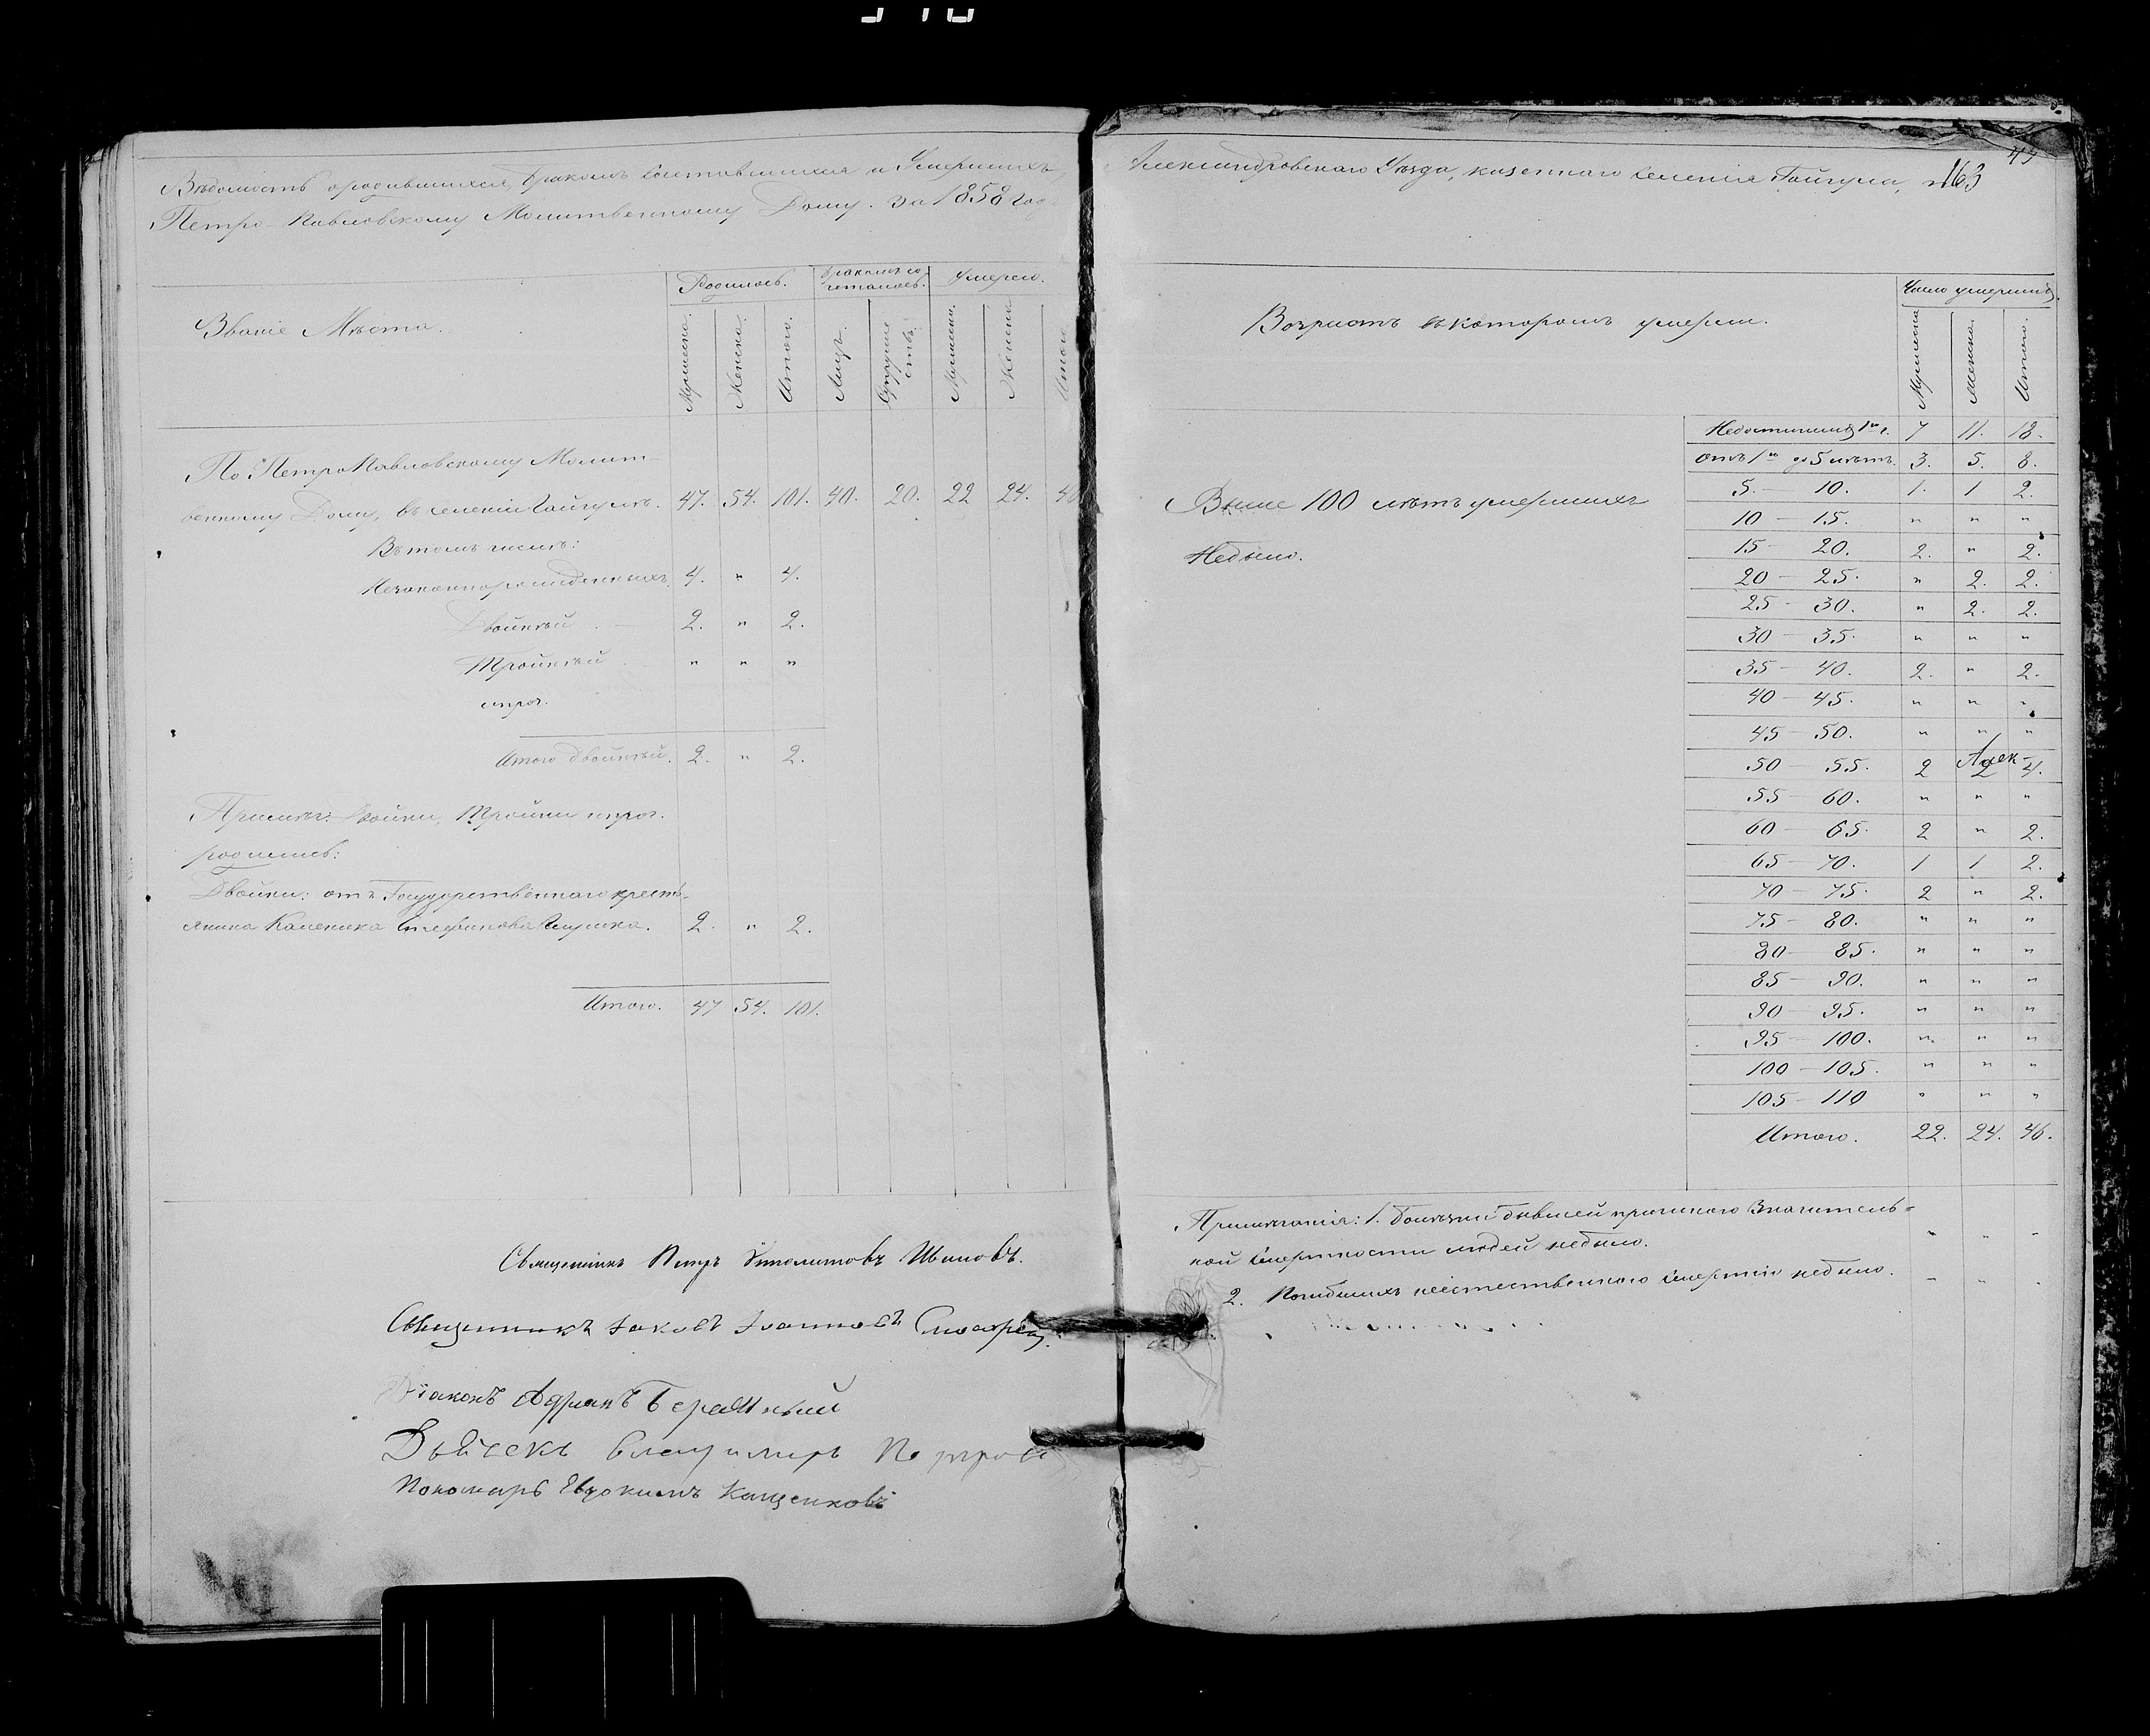 Вѣдомость о родившихся, бракомъ сочетавшихся и Умершихъ
Александровскаго Уѣзда, казеннаго селенія Гайчула,
163
Петро-Павловскому Молитвенному Дому. За 1858 год
Званіе Мѣста.
Родилось.
бракомъ со
четалось.
Умерло.
Мужеска.
Женска.
Итого.
Лицъ.
Супруже
ствъ.
Мужеска.
Женска
Итого
По Петропавловскому Молит-
венному Дому, въ селеніи Гайчулѣ. 47. 54. 101. 40. 20. 22 24. 46
Въ томъ числѣ:
Незаконнорожденныхъ. 4. " 4.
Двойней . — 2. " 2.
Тройней . " " "
и проч.
Итого двойней. 2. " 2.
Примѣч: Двойни, Тройни и проч.
родились:
Двойни: отъ Государственнаго кресть-
янина Каленика Стефанова 2. " 2.
Итого. 47 54. 101.
Священникъ Петръ Ипполитовъ Ивановъ.
Священникъ Іаковъ Іоанновъ
Діаконъ Адріанъ Бережный
Дьячекъ Владимиръ Петровъ
Пономарь Евдокимъ Кащенковъ
Возрастъ въ которомъ умерли.
Число умершихъ.
Мужеска
Женска.
Итого.
Недостигшихъ 1го г. 7 11. 18.
Отъ 1го до 5 лѣтъ. 3. 5. 8.
5. — 10. 1. 1 2.
Выше 100 лѣтъ умершихъ
Небыло.
10 — 15. " " "
15 — 20. 2. " 2.
20 — 25. " 2. 2.
25 — 30. " 2. 2.
30 — 35. " " "
35 — 40. 2. " 2.
40 — 45. " " "
45 — 50. " " "
Алек-
50 — 55. 2 2 4.
55 — 60. " " "
60 — 65. 2 " 2.
65 — 70. 1 1 2.
70 — 75. 2 " 2.
75 — 80. " " "
80 — 85. " " "
85 — 90. " " "
90 — 95. " " "
95 — 100. " " "
100 — 105. " " "
105 — 110 " " "
Итого. 22. 24. 46.
Примѣчанія: 1. Болѣзни бывшей причиною Значитель=
ной смертности людей небыло.
2. Погибшихъ неестественною смертію небыло.